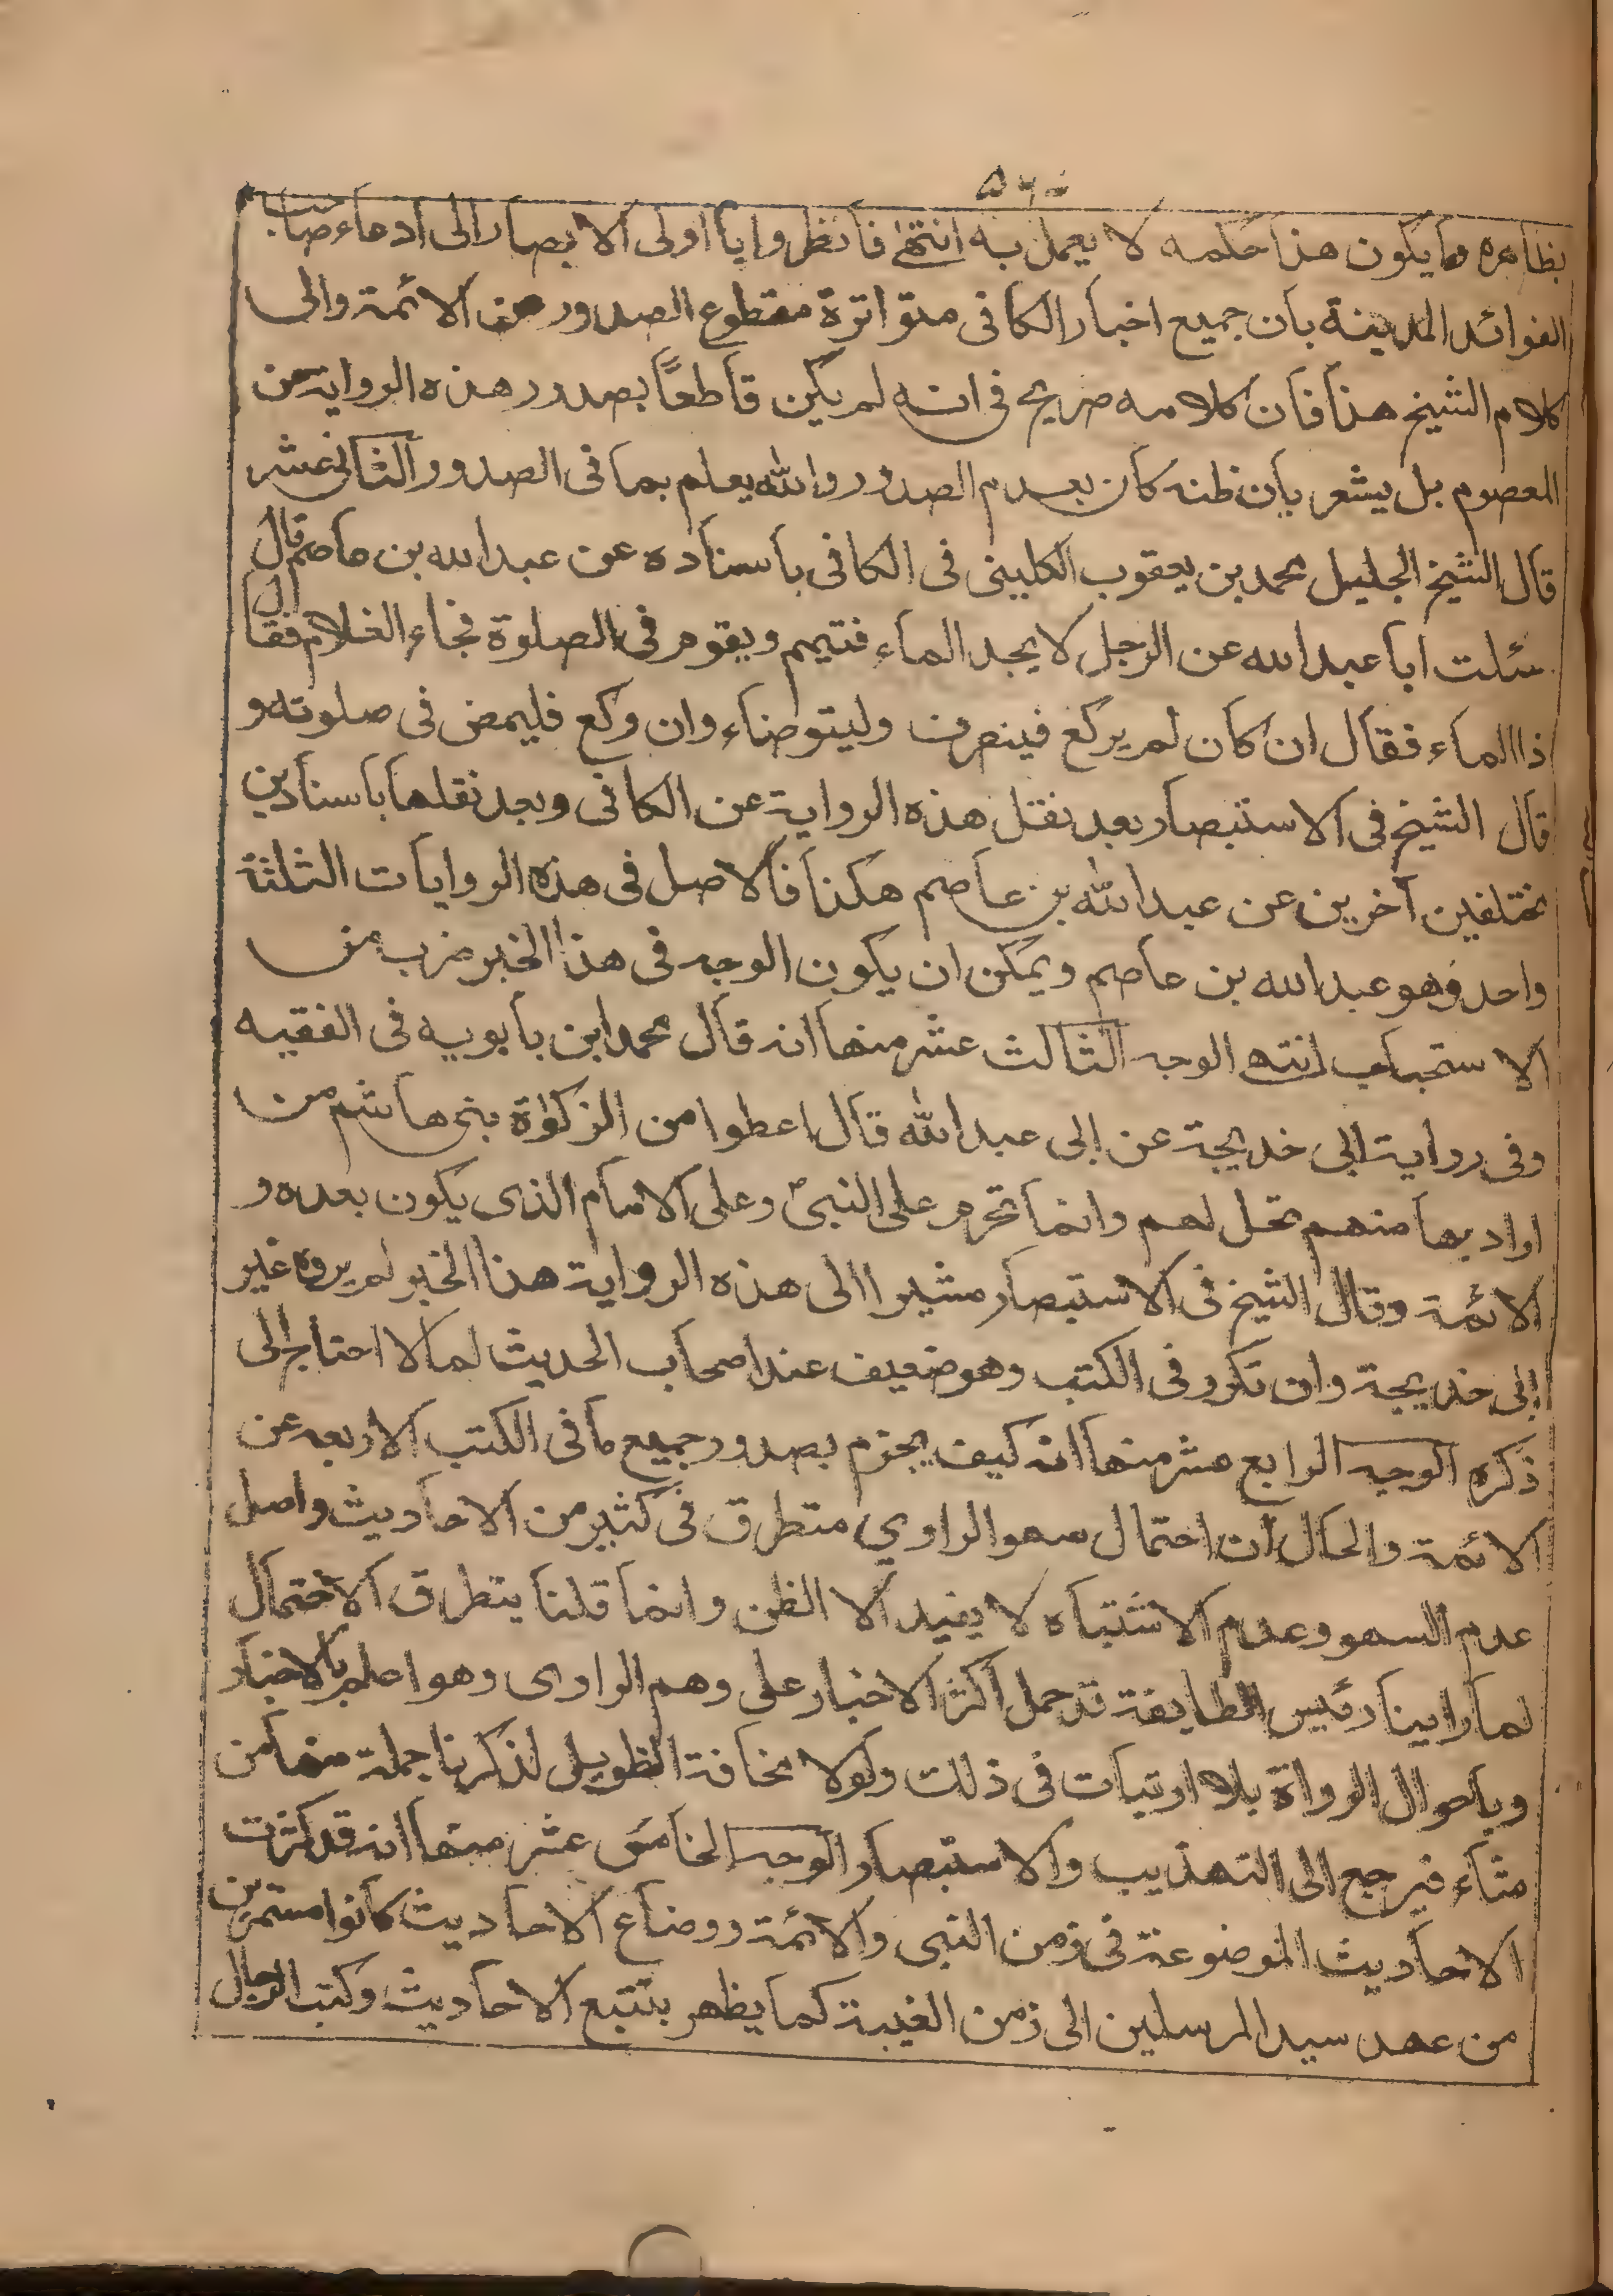 ٥٦٠
بظاهره وما يكون هذا حكمه لا يعمل به انتهى فانظروا يا اولى الابصار الى ادعاء صاحب
الفوائد المدينة بان جميع اخبار الكافى متواترة مقطوع الصدور عن الائمة والى
كلام الشيخ هذا فان كلامه صريح فى انه لم يكن قاطعاً بصدور هذه الرواية عن
المعصوم بل يشعر بان ظنه كان بعدم الصدور والله يعلم بما فى الصدور الثانى عشر
قال الشيخ الجليل محمد بن يعقوب الكلينى فى الكافى باسناده عن عبد الله بن عاصم قال
سئلت ابا عبد الله عن الرجل لا يجد الماء فتيمم ويقوم فى الصلوة فجاء الغلام فقال
ذا الماء فقال ان كان لم يركع فينصرف وليتوضاء وان ركع فليمض فى صلوته و
قال الشيخ فى الاستبصار بعد نقل هذه الرواية عن الكافى وبعد نقلها باسنادين
مختلفين آخرين عن عبد الله بن عاصم هكذا فالاصل فى هذه الروايات الثلثة
واحد وهو عبد الله بن عاصم ويمكن ان يكون الوجه فى هذا الخبر ضرب من
الاستحباب انتهى الوجه الثالث عشر منها انه قال محمد ابن بابويه فى الفقيه
وفى رواية ابى خديجة عن ابى عبد الله قال اعطوا من الزكوٰة بنى هاشم من
اراد بها منهم تحل لهم وانما تحرم على النبىّ وعلى الامام الذى يكون بعده و
الائمة وقال الشيخ فى الاستبصار مشيرا الى هذه الرواية هذا الخبر لم يروه غير
ابى خديجة وان تكرر فى الكتب وهو ضعيف عند اصحاب الحديث لما لا احتاج الى
ذكره الوجه الرابع عشر منها انه كيف يجزم بصدور جميع ما فى الكتب الاربعه عن
الائمة والحال ان احتمال سهو الراوي متطرق فى كثير من الاحاديث واصل
عدم السهو وعدم الاشتباه لا يفيد الا الظن وانما قلنا يتطرق الاحتمال
لما راينا رئيس الطايفة قد حمل اكثر الاخبار على وهم الراوى وهو اعلم بالاخبار
وباحوال الرواة بلا ارتياب فى ذلك ولولا مخافة التطويل لذكرنا جملة منها من
شاء فيرجع الى التهذيب والاستبصار الوجه الخامس عشر منها انه قد كثرت
الاحاديث الموضوعة فى زمن النبى والائمة ووضاع الاحاديث كانوا مستمرين
من عهد سيد المرسلين الى زمن الغيبة كما يظهر بتتبع الاحاديث وكتب الرجال